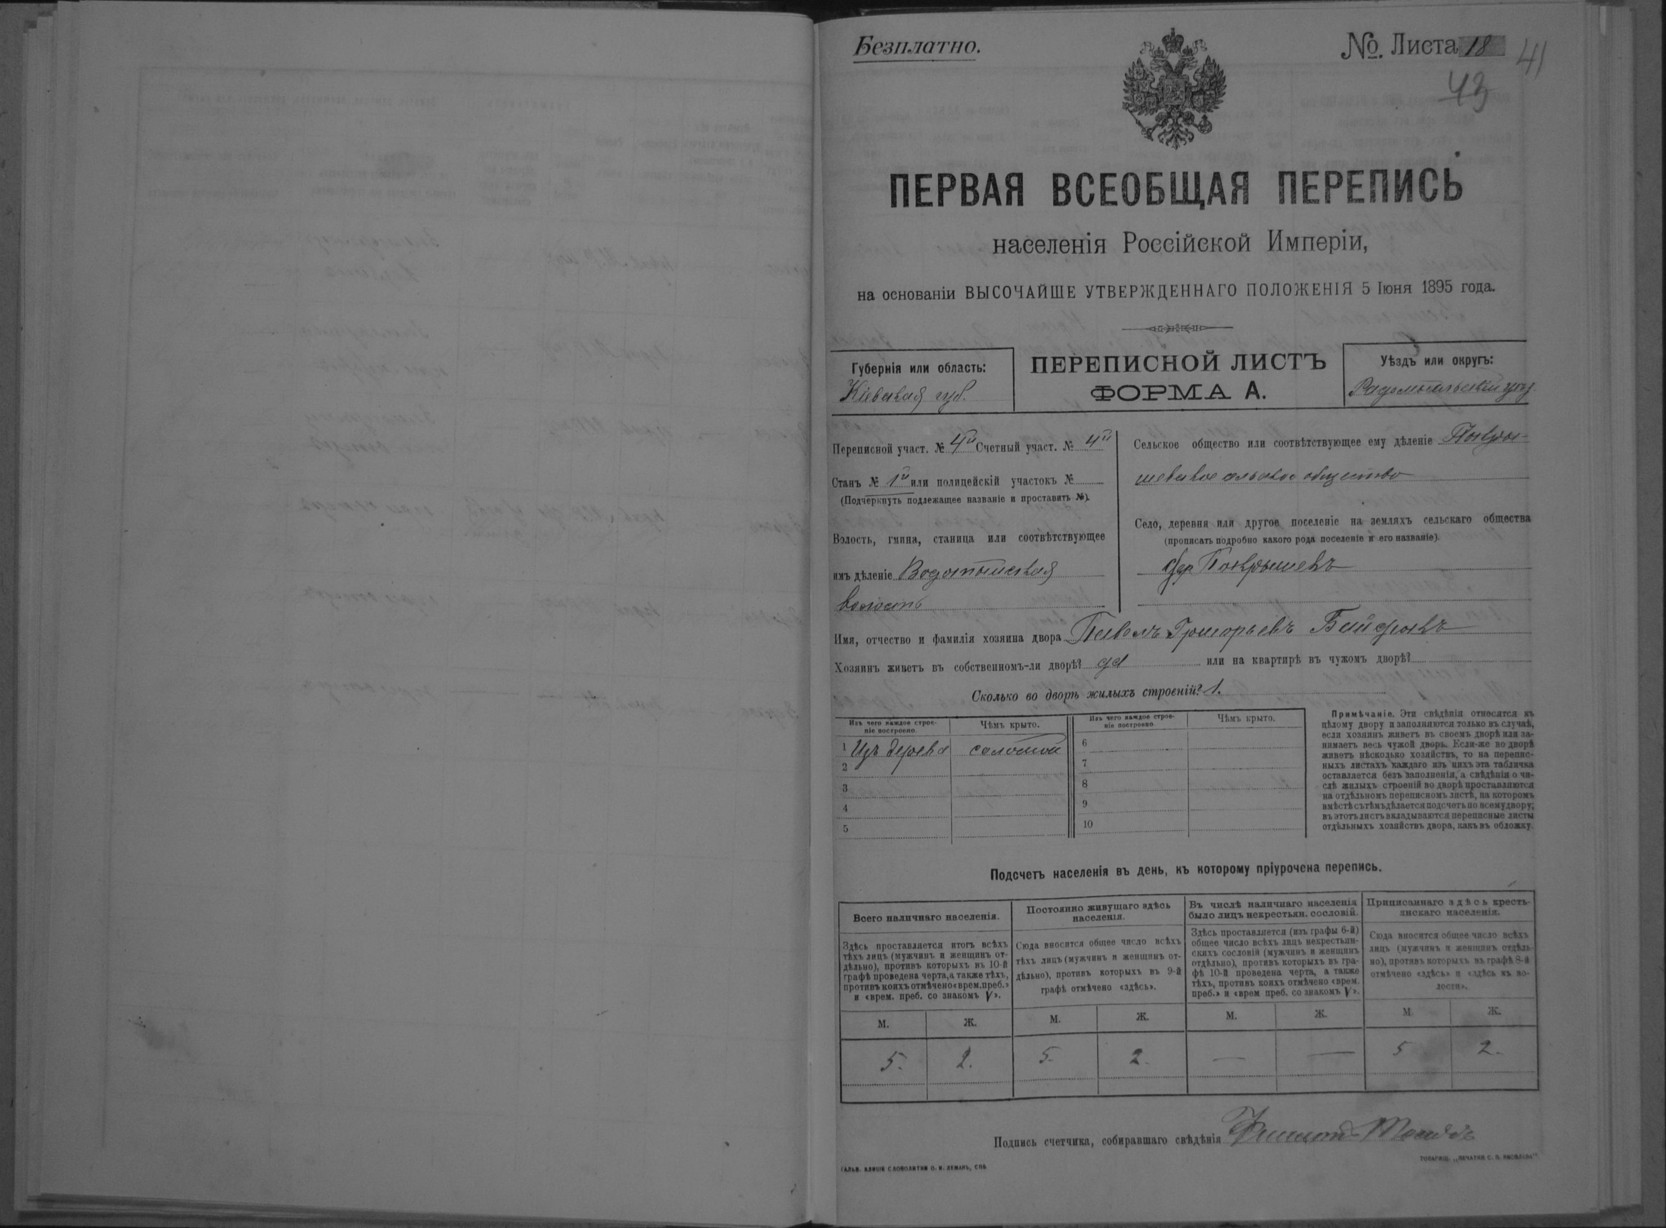 Безплатно.
№. Листа 18
41
43
ПЕРВАЯ ВСЕОБЩАЯ ПЕРЕПИСЬ
населенія Россійской Имперіи,
на основаніи ВЫСОЧАЙШЕ УТВЕРЖДЕННАГО ПОЛОЖЕНІЯ 5 Іюня 1895 года.
Губернія или область:
Кіевская губ.
ПЕРЕПИСНОЙ ЛИСТЪ
ФОРМА А.
Уѣздъ или округъ:
Радомысльскій уѣзд
Переписной участ. № 4й Счетный участ. № 4й
Станъ № 1й или полицейскій участокъ №
(Подчеркнуть подлежащее названіе и проставить №).
Волость, гмина, станица или соотвѣтствующее
имъ дѣленіе Водотыйская
волость
Сельское общество или соотвѣтствующее ему дѣленіе Покры-
шевское сельское общество
Село, деревня или другое поселеніе на земляхъ сельскаго общества
(прописать подробно какого рода поселеніе и его названіе).
дер Покрышевъ
Имя, отчество и фамилія хозяина двора Павелъ Григорьевъ
Хозяинъ живетъ въ собственномъ-ли дворѣ? да или на квартирѣ въ чужомъ дворѣ?
Сколько во дворѣ жилыхъ строеній? 1.
Изъ чего каждое строе-
ніе построено.
Чѣмъ крыто.
Изъ чего каждое строе-
ніе построено.
Чѣмъ крыто.
1 Изъ дерева соломой
2
3
4
5
6
7
8
9
10
Примѣчаніе. Эти свѣдѣнія относятся къ
цѣлому двору и заполняются только въ случаѣ,
если хозяинъ живетъ въ своемъ дворѣ или за-
нимаетъ весь чужой дворъ. Если-же во дворѣ
живетъ нѣсколько хозяйствъ, то на перепис-
ныхъ листахъ каждаго изъ нихъ эта табличка
оставляется безъ заполненія, а свѣдѣнія о чи-
слѣ жилыхъ строеній во дворѣ проставляются
на отдѣльномъ переписномъ листѣ, на которомъ
вмѣстѣ съ тѣмъ дѣлается подсчетъ по всему двору;
въ этотъ листъ вкладываются переписные листы
отдѣльныхъ хозяйствъ двора, какъ въ обложку.
Подсчетъ населенія въ день, къ которому пріурочена перепись.
Всего наличнаго населенія.
Здѣсь проставляется итогъ всѣхъ
тѣхъ лицъ (мужчинъ и женщинъ от-
дѣльно), противъ которыхъ въ 10-й
графѣ проведена черта, а также тѣхъ,
противъ коихъ отмѣчено «врем. преб.»
и «врем. преб. со знакомъ V».
Постоянно живущаго здѣсь
населенія.
Сюда вносится общее число всѣхъ
тѣхъ лицъ (мужчинъ и женщинъ от-
дѣльно), противъ которыхъ въ 9-й
графѣ отмѣчено «здѣсь».
Въ числѣ наличнаго населенія
было лицъ некрестьян. сословій.
Здѣсь проставляется (изъ графы 6-й)
общее число всѣхъ лицъ некрестьян-
скихъ сословій (мужчинъ и женщинъ
отдѣльно), противъ которыхъ въ гра-
фѣ 10-й проведена черта, а также
тѣхъ, противъ коихъ отмѣчено «врем.
преб.» и «врем преб. со знакомъ V».
Приписаннаго здѣсь кресть-
янскаго населенія.
Сюда вносится общее число всѣхъ
лицъ (мужчинъ и женщинъ отдѣль-
но), противъ которыхъ въ графѣ 8-й
отмѣчено «здѣсь» и «здѣсь въ во-
лости».
М. Ж. М. Ж. М. Ж. М. Ж.
5. 2. 5. 2. — — 5 2.
Подпись счетчика, собиравшаго свѣдѣнія